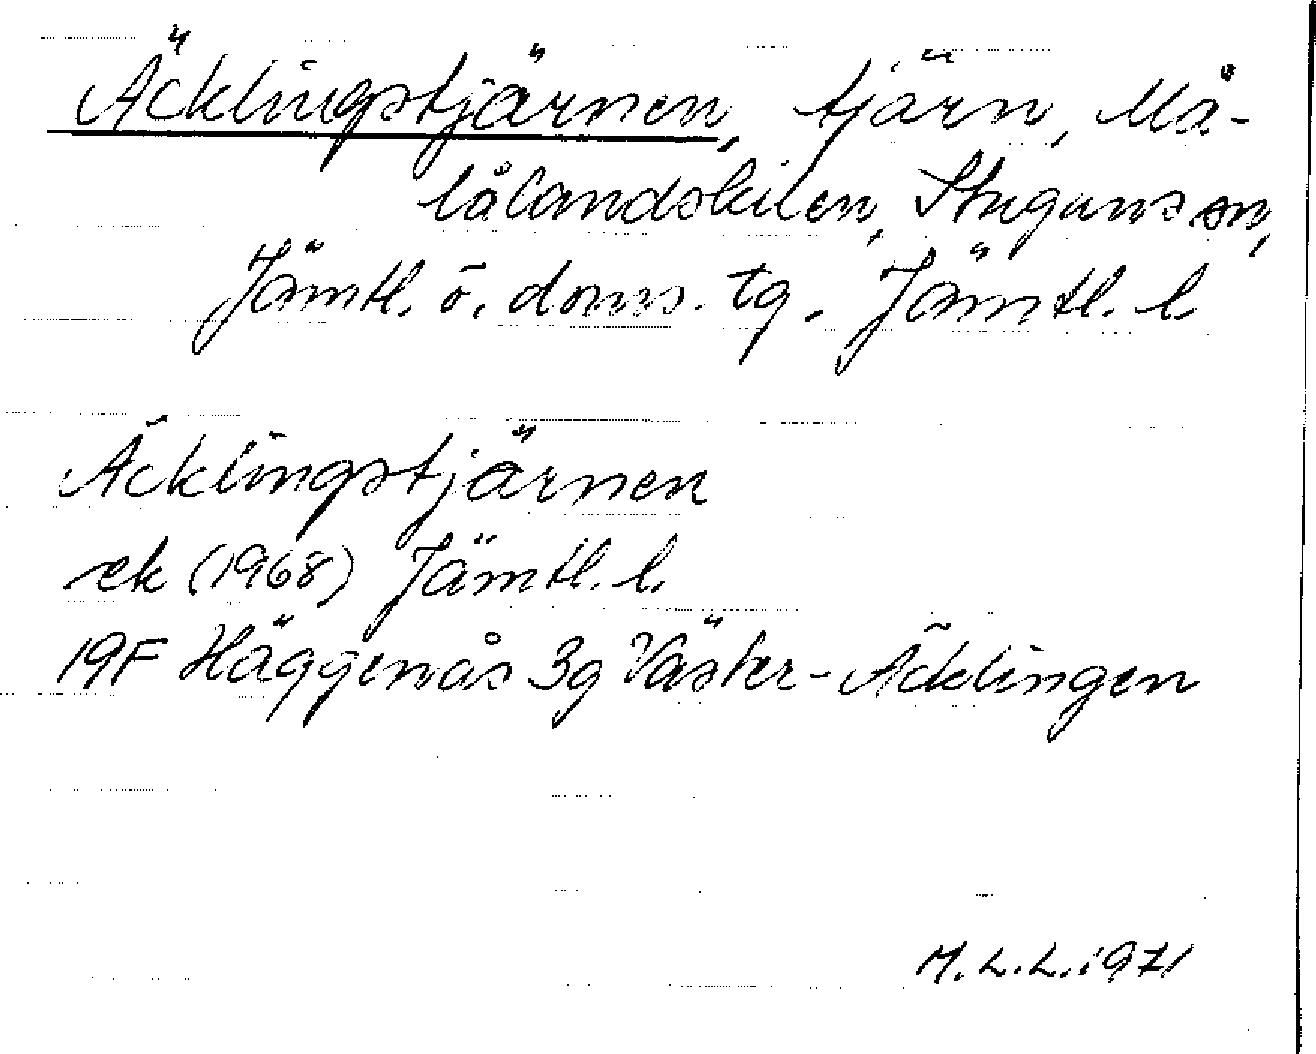 Äcklingstjärnen, tjärn, Må-
lålandskilen, Stuguns sn,
Jämtl. ö. doms. tg. Jämtl. l
Äcklingstjärnen
ek (1968) Jämtl. l.
19F Häggenås 3g Väster-Äcklingen
M.L.L. 1971